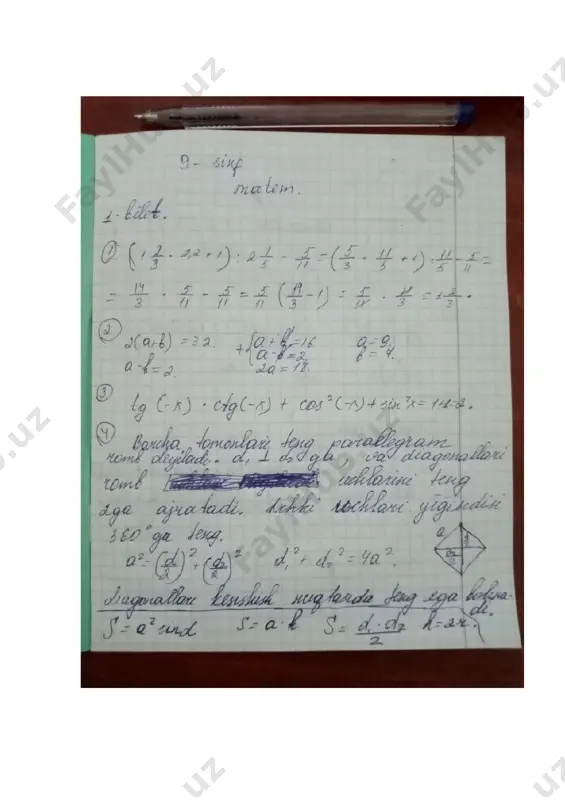 9- sinf
matem.
1- bilet.
① (1 2/3 · 2,2 + 1) · 2 1/5 - 5/11 = (5/3 · 11/5 + 1) · 11/5 - 5/11 =
= 14/3 · 5/11 - 5/11 = 5/11 (14/3 - 1) = 5/11 · 11/3 = 1 2/3 .
②
2(a+b) = 32. + { a+b=16 a=9,
a-b=2. a-b=2. b=7.
2a=18.
③
tg(-x) · ctg(-x) + cos²(-x) + sin²x = 1+1=2.
④ Barcha tomonlari teng paralelegram
romb deyiladi. d₁ ⊥ d₂ ga, va diagonallari
romb uchlarini teng
2ga ajratadi. Ichki uchlari yigindisi
360° ga teng.
a
a² = (d₁/2)² + (d₂/2)² d₁² + d₂² = 4a².
diagonallari kesishish nuqtarda teng 2ga bolina-
di.
S = a² sinα S = a · h S = d₁ · d₂ / 2 h = 2r.
FaylHub.uz